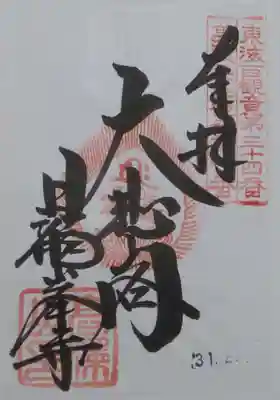 東海百観音第三十四番
奉拝
大悲閣
日龍峯寺
31.